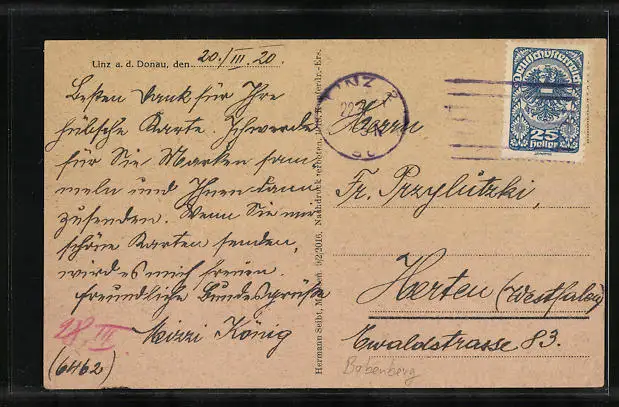 Linz a. d. Donau, den 20./III. 20.
Besten Dank für Ihre
hübsche Karte. Ich werde
für Sie Marken sam-
meln und Ihnen dann
zusenden. Wenn Sie mir
schöne Karten senden,
wird es mich freuen.
Freundliche Bundesgrüße
Mizzi König
28. III.
(6462)
Hermann Seibt, Meissen 592/3016. Nachdruck verboten.
LINZ 2
Deutschösterreich
25
Heller
Herrn
Fr. Przylutzki,
Herten (Westfalen)
Ewaldstrasse 83.
Babenberg